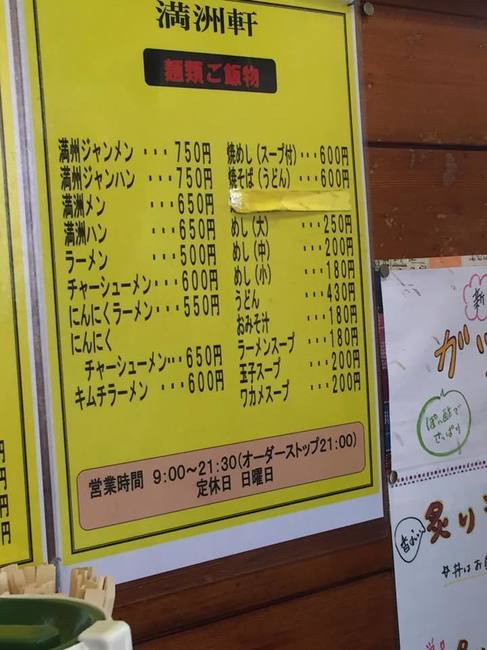 満洲軒
麺類ご飯物
満州ジャンメン・・・750円
満州ジャンハン・・・750円
満洲メン・・・650円
満洲ハン・・・650円
ラーメン・・・500円
チャーシューメン・・・600円
にんにくラーメン・・・550円
にんにく
チャーシューメン・・・650円
キムチラーメン・・・600円
焼めし(スープ付)・・・600円
焼そば(うどん)・・・600円
めし(大)・・・250円
めし(中)・・・200円
めし(小)・・・180円
うどん・・・430円
おみそ汁・・・180円
ラーメンスープ・・・180円
玉子スープ・・・200円
ワカメスープ・・・200円
営業時間 9:00〜21:30(オーダーストップ21:00)
定休日 日曜日
円
円
円
円
新
ガ
ぽん酢で
さっぱり
炙り